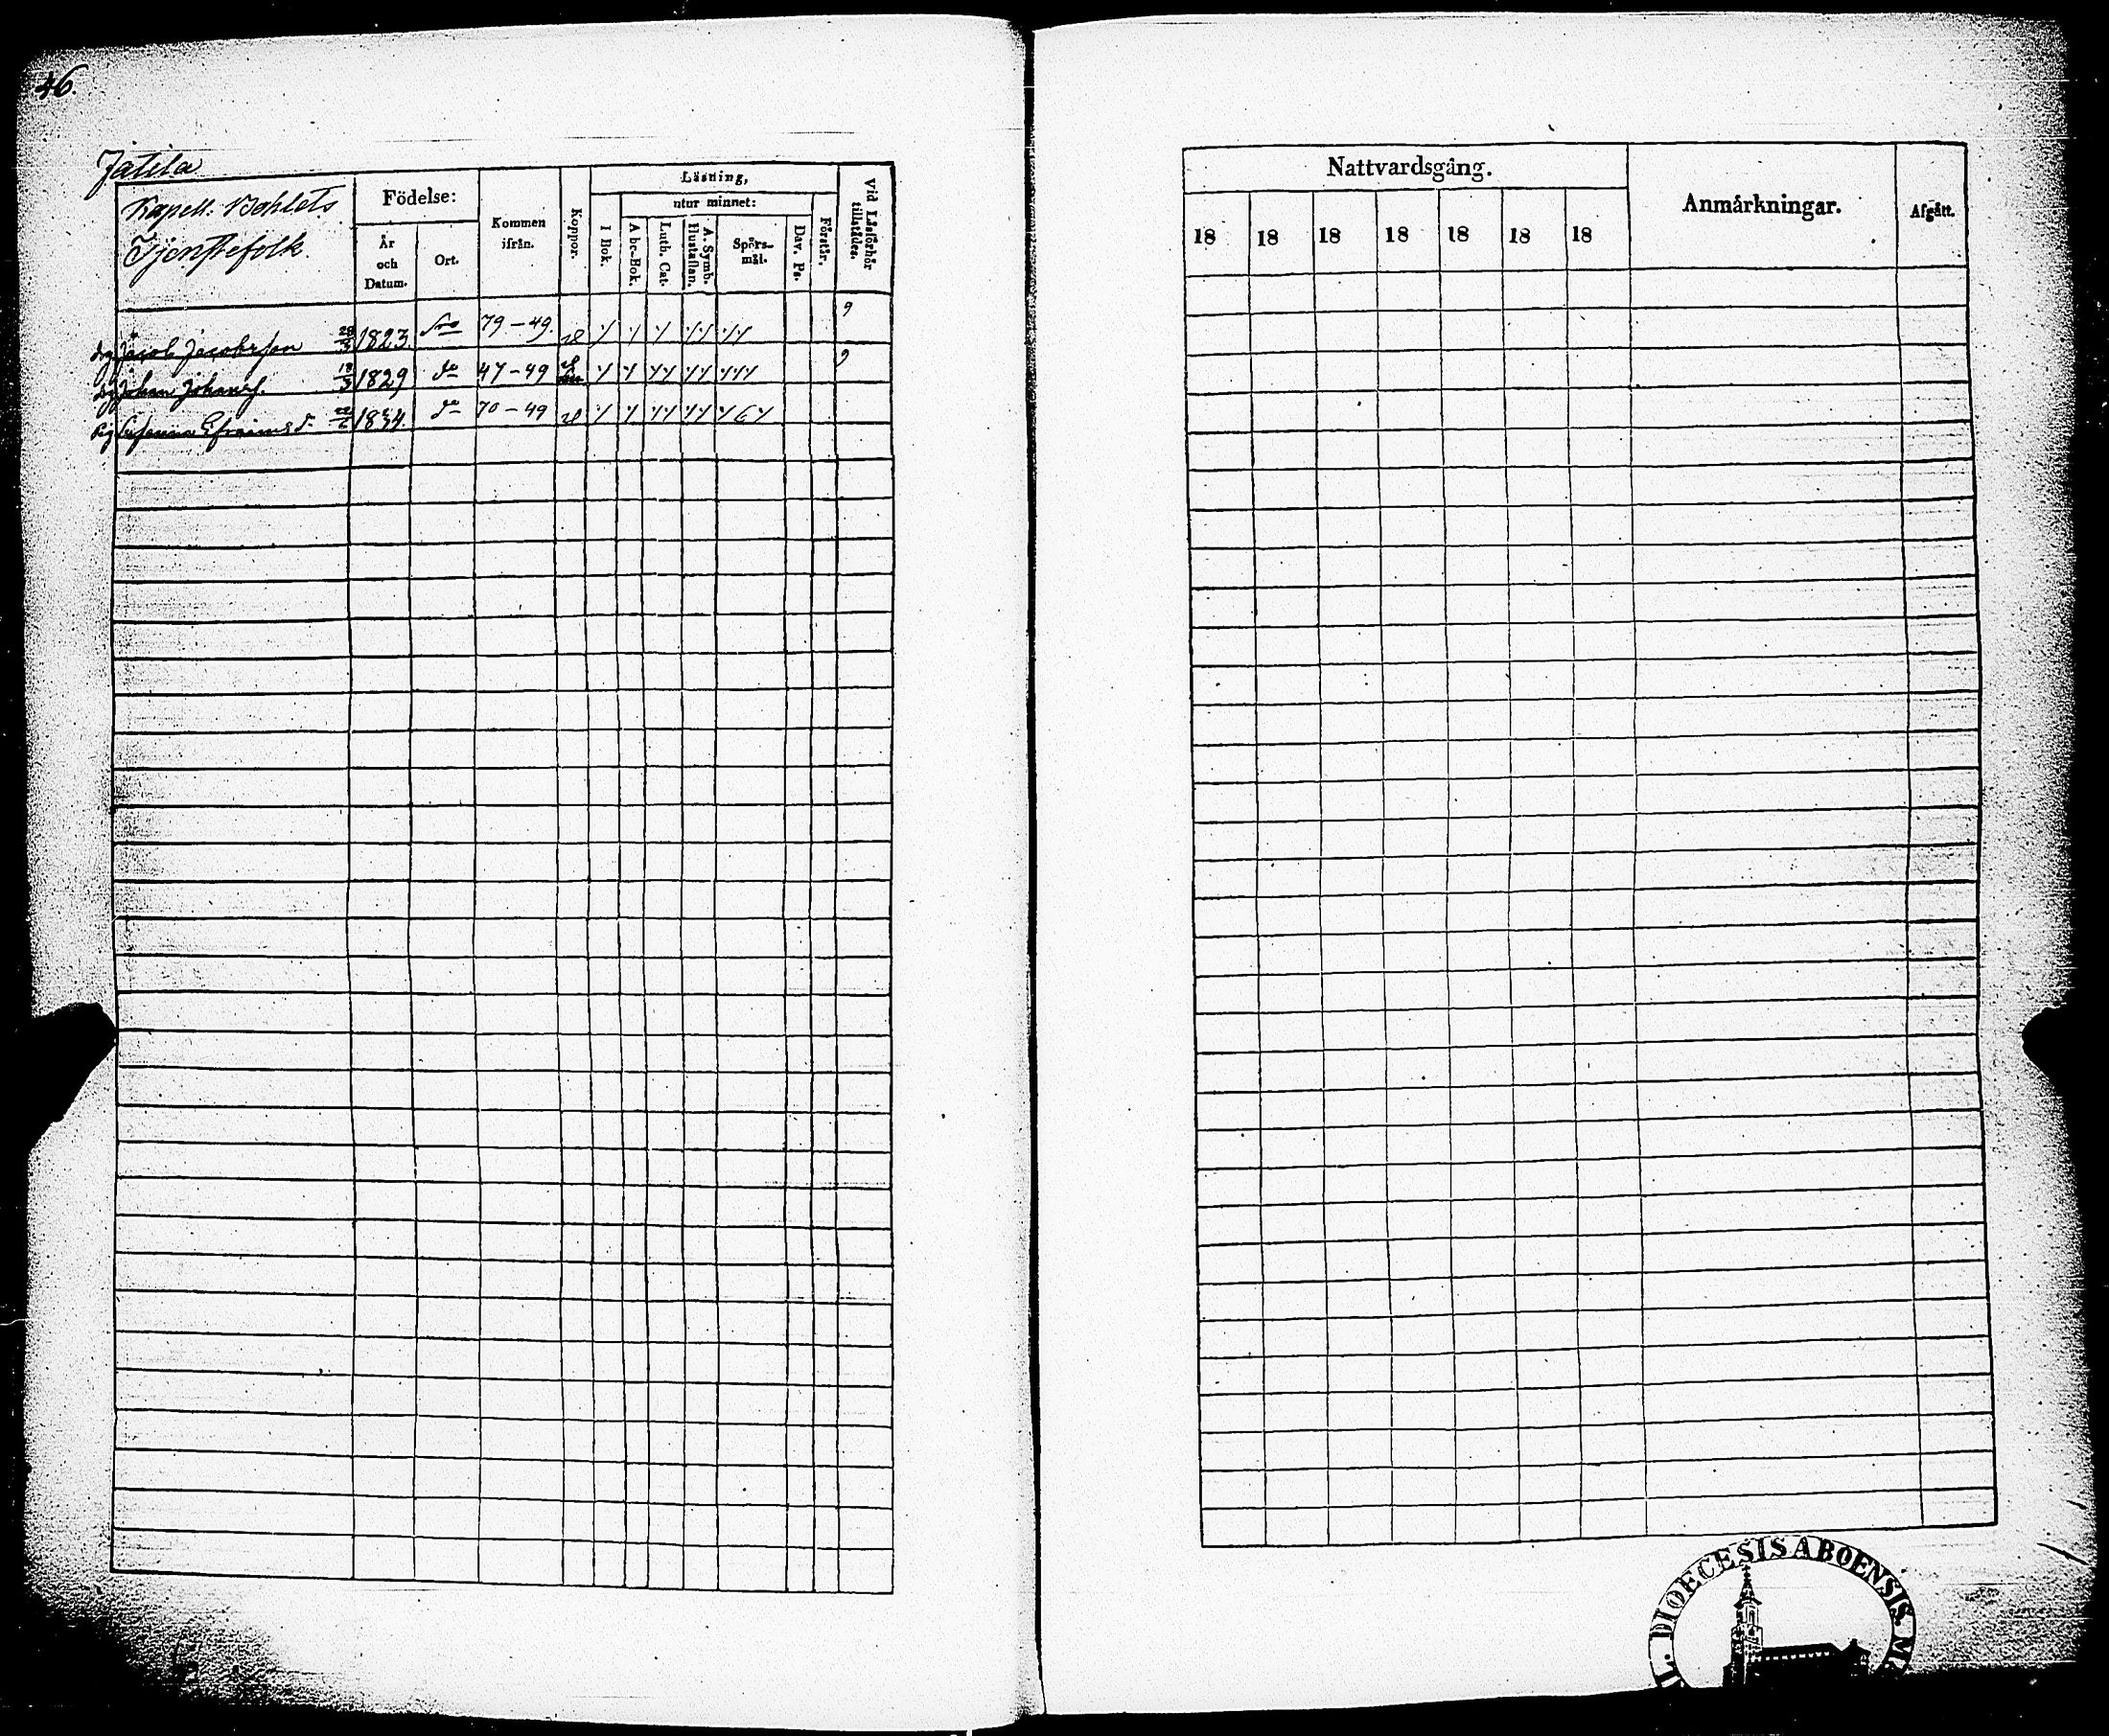 46.
Jatila
Kapell: Bohlets
Tjenstefolk.
Födelse:
År
och
Datum.
Ort.
Kommen
ifrån.
Koppor.
Läsning,
utur minnet:
I Bok.
Abc-Bok.
Luth. Cat.
A. Symb.
Hustaflan.
Spörs-
mål.
Dav. Ps.
Förstår.
Vid Läsförhör
tillstädes.
drg Jacob Jacobsson 28/3 1823 79-49. 9
drg Johan Johans. 18/3 1829 do 47-49 9
pig Susanna Efraimsd. 1834. do 70-49
Nattvardsgång.
18 18 18 18 18 18 18
Anmärkningar.
Afgått.
DIOECESIS ABOENSIS. M